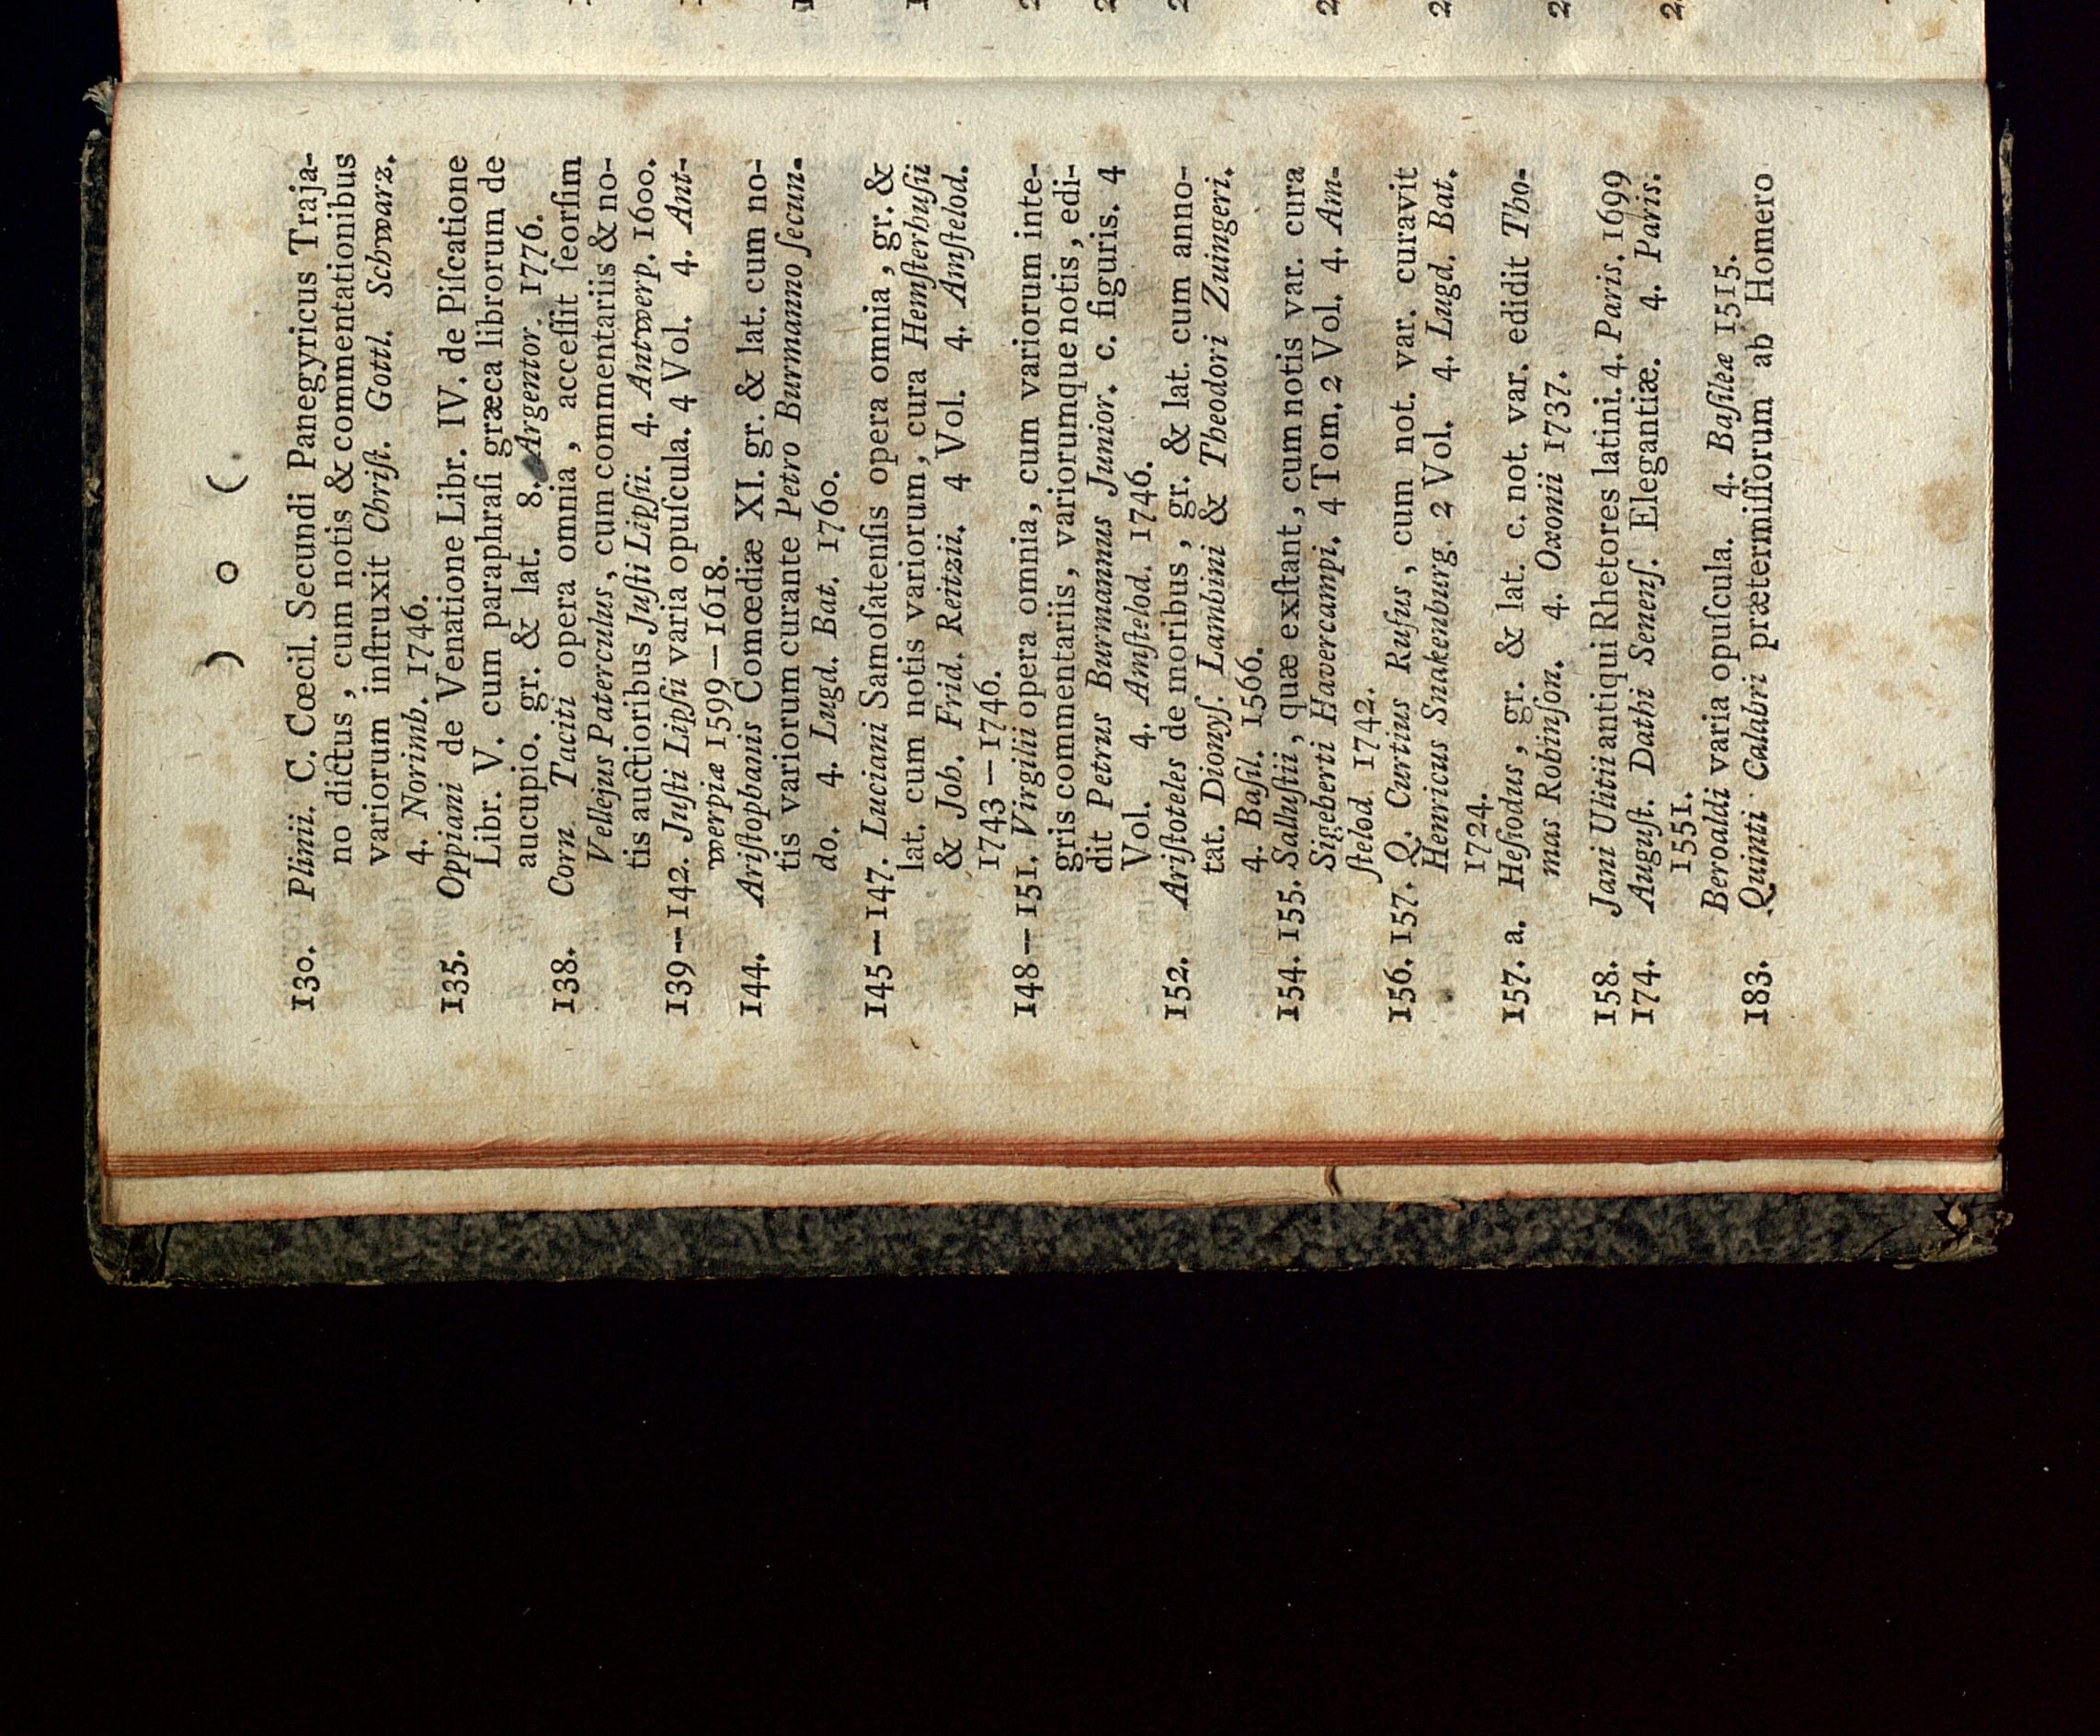 ) o (
130. Plinii. C. Cœcil. Secundi Panegyricus Traja-
no dictus, cum notis & commentationibus
variorum inſtruxit Chriſt. Gottl. Schwarz.
4. Norimb. 1746.
135. Oppiani de Venatione Libr. IV. de Piſcatione
Libr. V. cum paraphraſi græca librorum de
aucupio. gr. & lat. 8. Argentor. 1776.
138. Corn Taciti opera omnia, acceſſit ſeorſim
Vellejus Paterculus, cum commentariis & no-
tis auctioribus Juſti Lipſii. 4. Antwerp. 1600.
139—142. Juſti Lipſii varia opuſcula. 4 Vol. 4. Ant-
werpiæ 1599—1618.
144. Ariſtophanis Comœdiæ XI. gr. & lat. cum no-
tis variorum curante Petro Burmanno ſecun-
do. 4. Lugd. Bat. 1760.
145—147. Luciani Samoſatenſis opera omnia, gr. &
lat. cum notis variorum, cura Hemſterhuſii
& Joh. Frid. Reitzii. 4 Vol. 4. Amſtelod.
1743—1746.
148—151. Virgilii opera omnia, cum variorum inte-
gris commentariis, variorumque notis, edi-
dit Petrus Burmannus Junior. c. figuris. 4
Vol. 4. Amſtelod. 1746.
152. Ariſtoteles de moribus, gr. & lat. cum anno-
tat. Dionyſ. Lambini & Theodori Zuingeri.
4. Baſil. 1566.
154. 155. Salluſtii, quæ exſtant, cum notis var. cura
Sigeberti Havercampi. 4 Tom. 2 Vol. 4. Am-
ſtelod 1742.
156. 157. Q. Curtius Rufus, cum not. var. curavit
Henricus Snakenburg. 2 Vol. 4. Lugd. Bat.
1724.
157. a. Heſiodus, gr. & lat. c. not. var. edidit Tho-
mas Robinſon. 4. Oxonii 1737.
158. Jani Ulitii antiqui Rhetores latini. 4. Paris. 1699
174. Auguſt. Dathi Senenſ. Elegantiæ. 4. Paris.
1551.
Beroaldi varia opuſcula. 4. Baſileæ 1515.
183. Quinti Calabri prætermiſſorum ab Homero